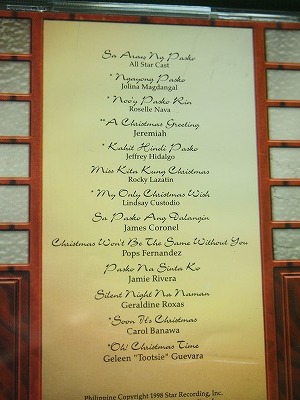 Sa Araw Ng Pasko
All Star Cast
* Ngayong Pasko
Jolina Magdangal
* Noo'y Pasko Rin
Roselle Nava
**A Christmas Greeting
Jeremiah
* Kahit Hindi Pasko
Jeffrey Hidalgo
Miss Kita Kung Christmas
Rocky Lazatin
* My Only Christmas Wish
Lindsay Custodio
Sa Pasko Ang Dalangin
James Coronel
Christmas Won't Be The Same Without You
Pops Fernandez
Pasko Na Sinta Ko
Jamie Rivera
Silent Night Na Naman
Geraldine Roxas
*Soon It's Christmas
Carol Banawa
*Oh! Christmas Time
Geleen "Tootsie" Guevara
Philippine Copyright 1998 Star Recording, Inc.